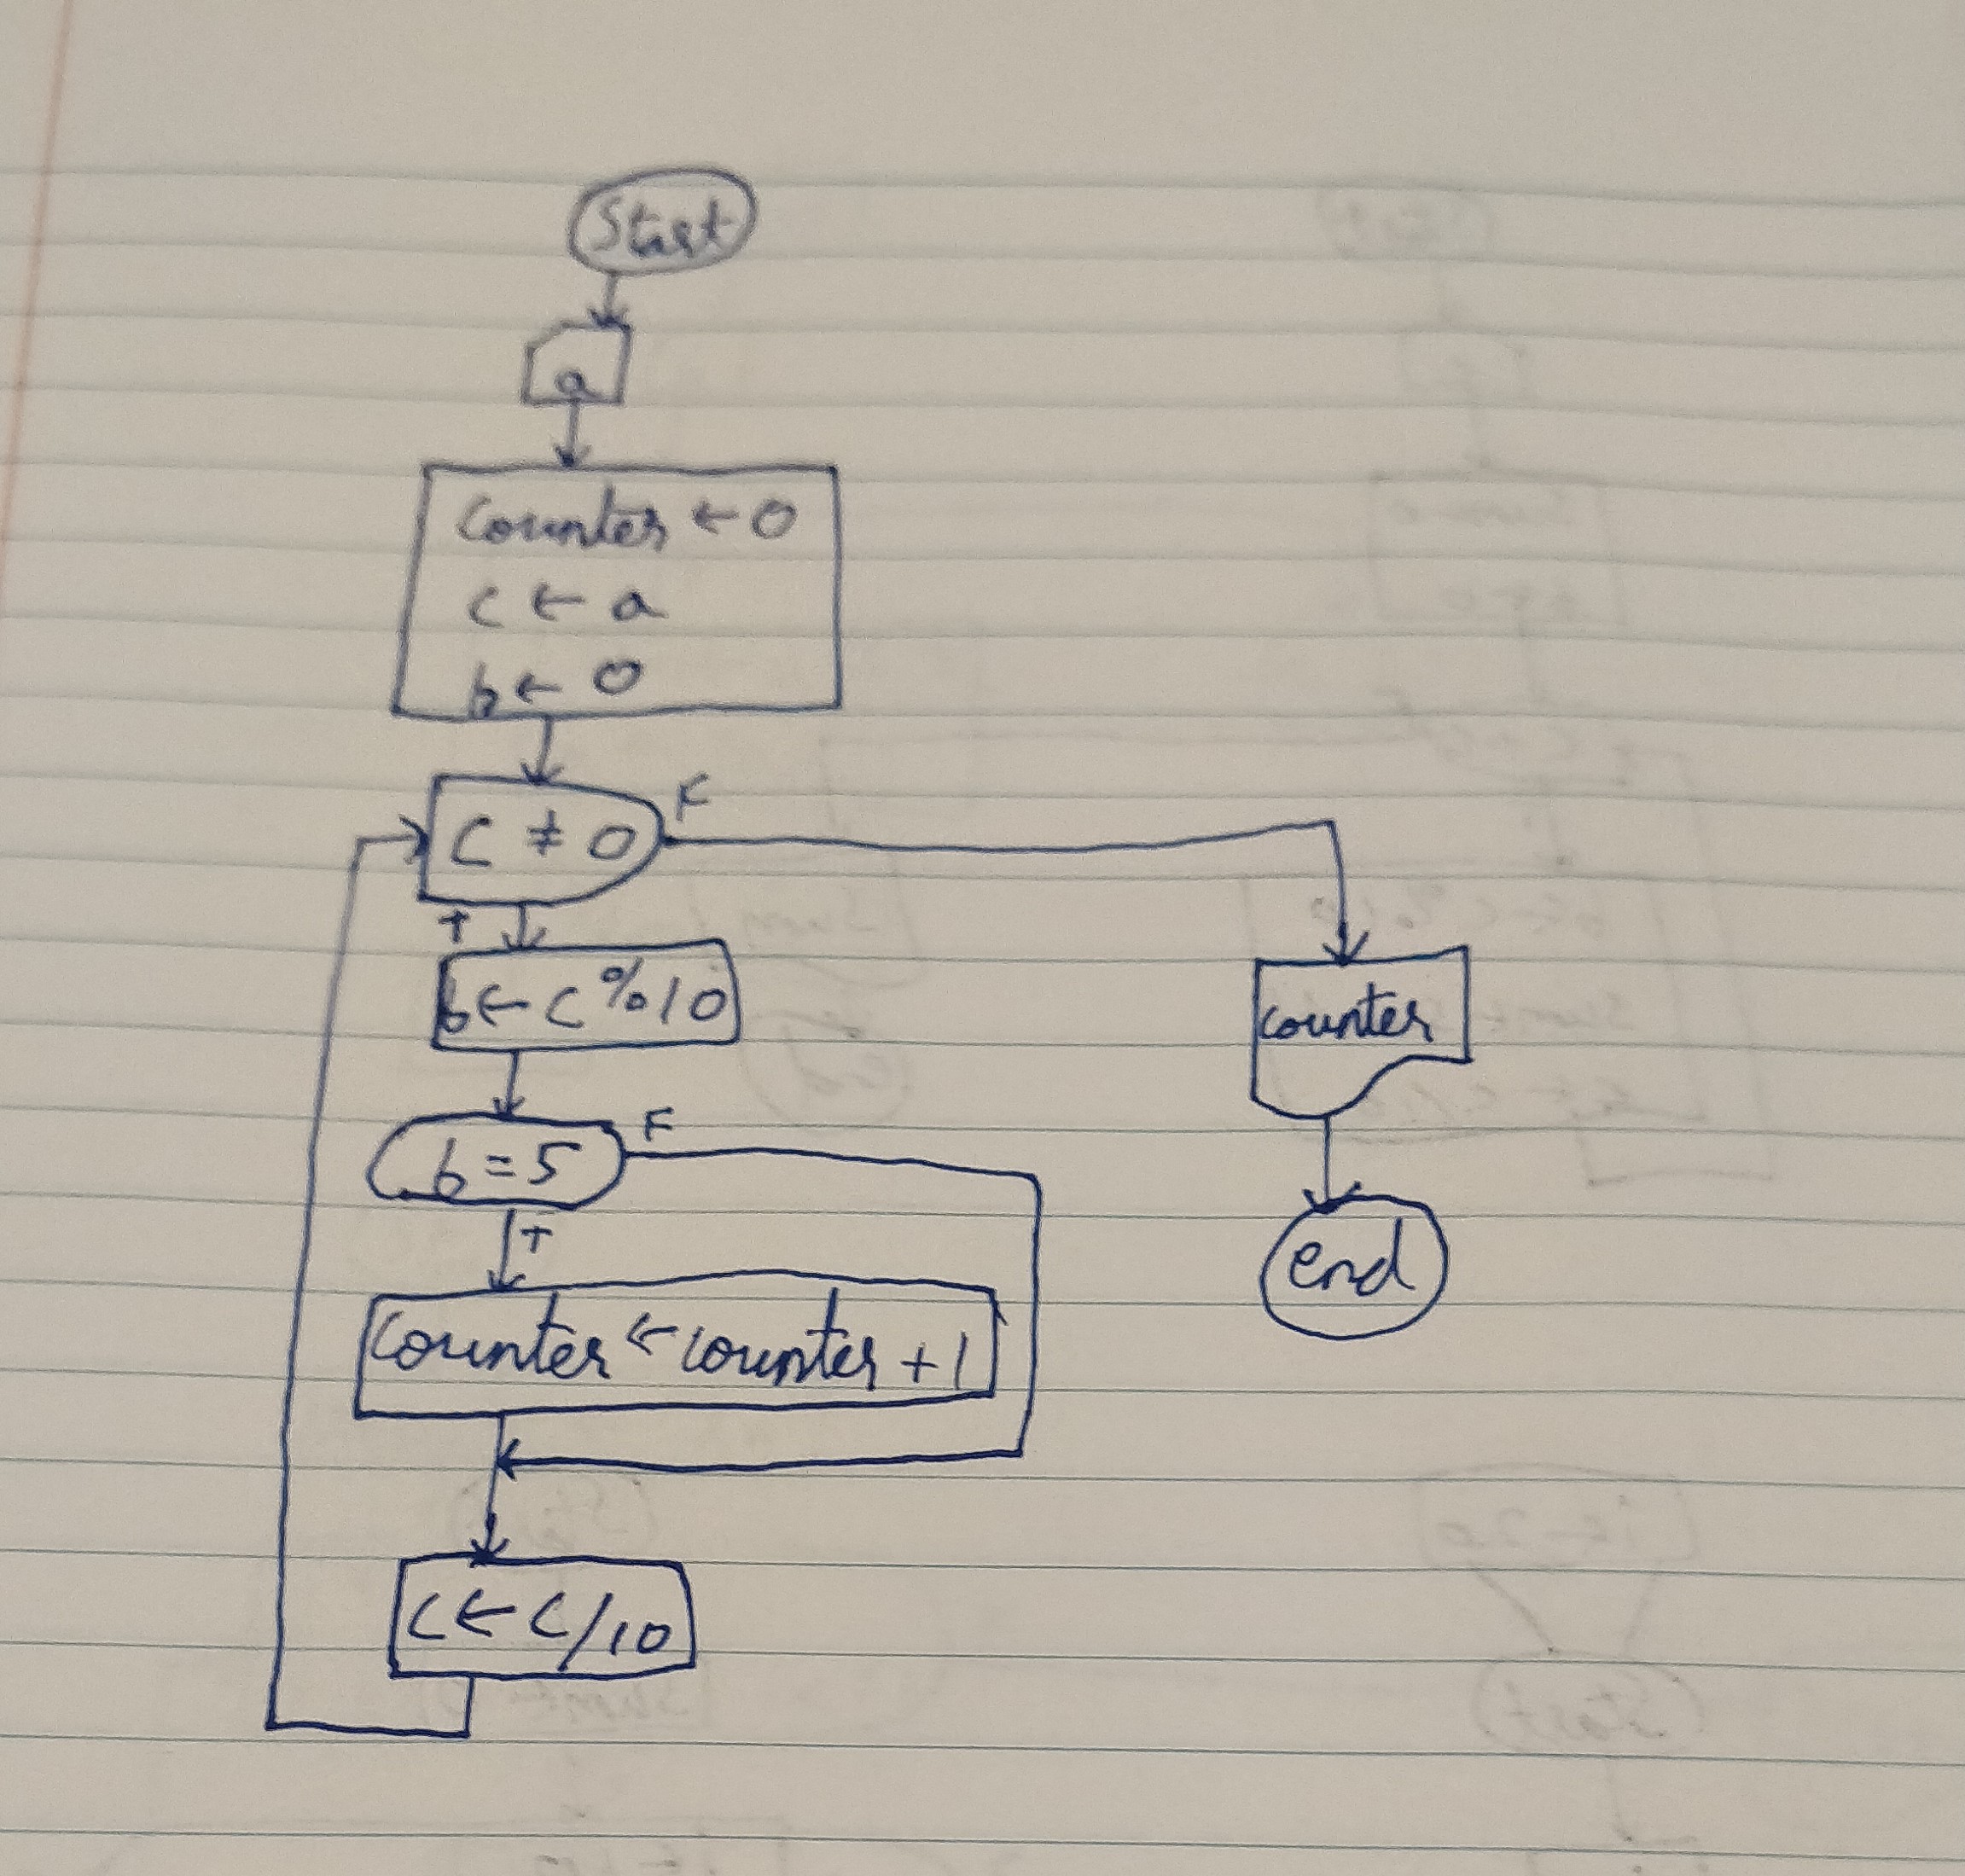 Start
a
Counter ← 0
c ← a
b ← 0
C ≠ 0
F
T
b ← c % 10
b = 5
F
T
Counter ← counter + 1
C ← C/10
counter
end